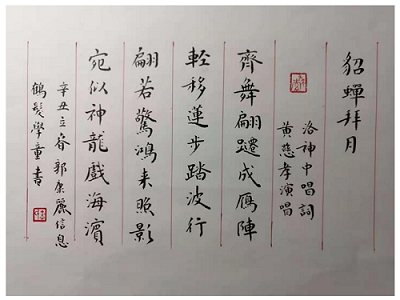 貂蟬拜月
洛神中唱詞
黃慈孝演唱
齊舞翩躚成雁陣
輕移蓮步踏波行
翩若驚鴻來照影
宛似神龍戲海濱
辛丑立春郭康麗信息
鶴髮學童書